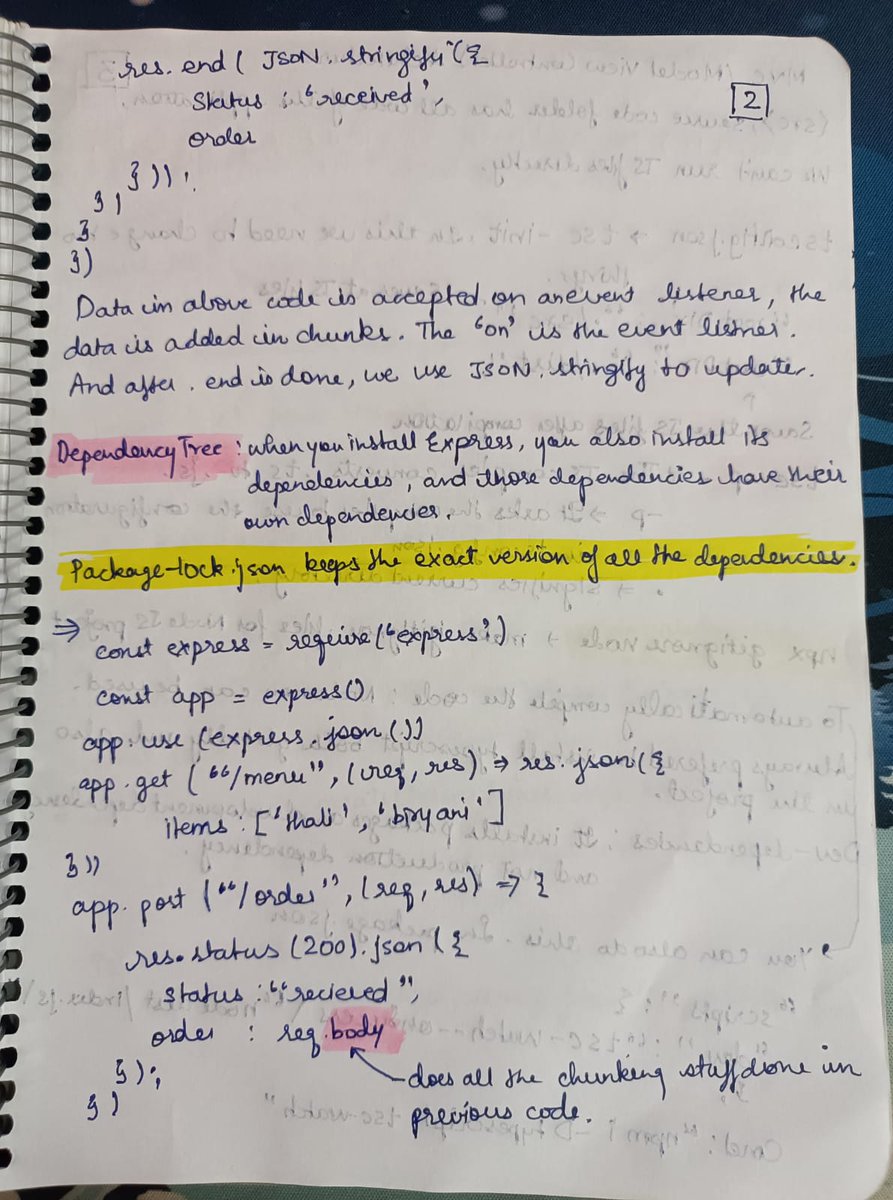 res.end( JSON.stringify({
status : "received",
order
}));
},
}
})
2
Data in above code is accepted on an event listener, the
data is added in chunks. The 'on' is the event listner.
And after .end is done, we use JSON.stringify to update.
Dependency Tree : when you install Express, you also install its
dependencies, and those dependencies have their
own dependencies.
Package-lock.json keeps the exact version of all the dependencies.
⇒
const express = require("express")
const app = express()
app.use (express.json())
app.get ("/menu", (req, res) => res.json({
items : ['thali', 'biryani']
}))
app.post ("/order", (req, res) => {
res.status (200).json ({
status : "recieved",
order : req.body
});
})
does all the chunking stuff done in
previous code.